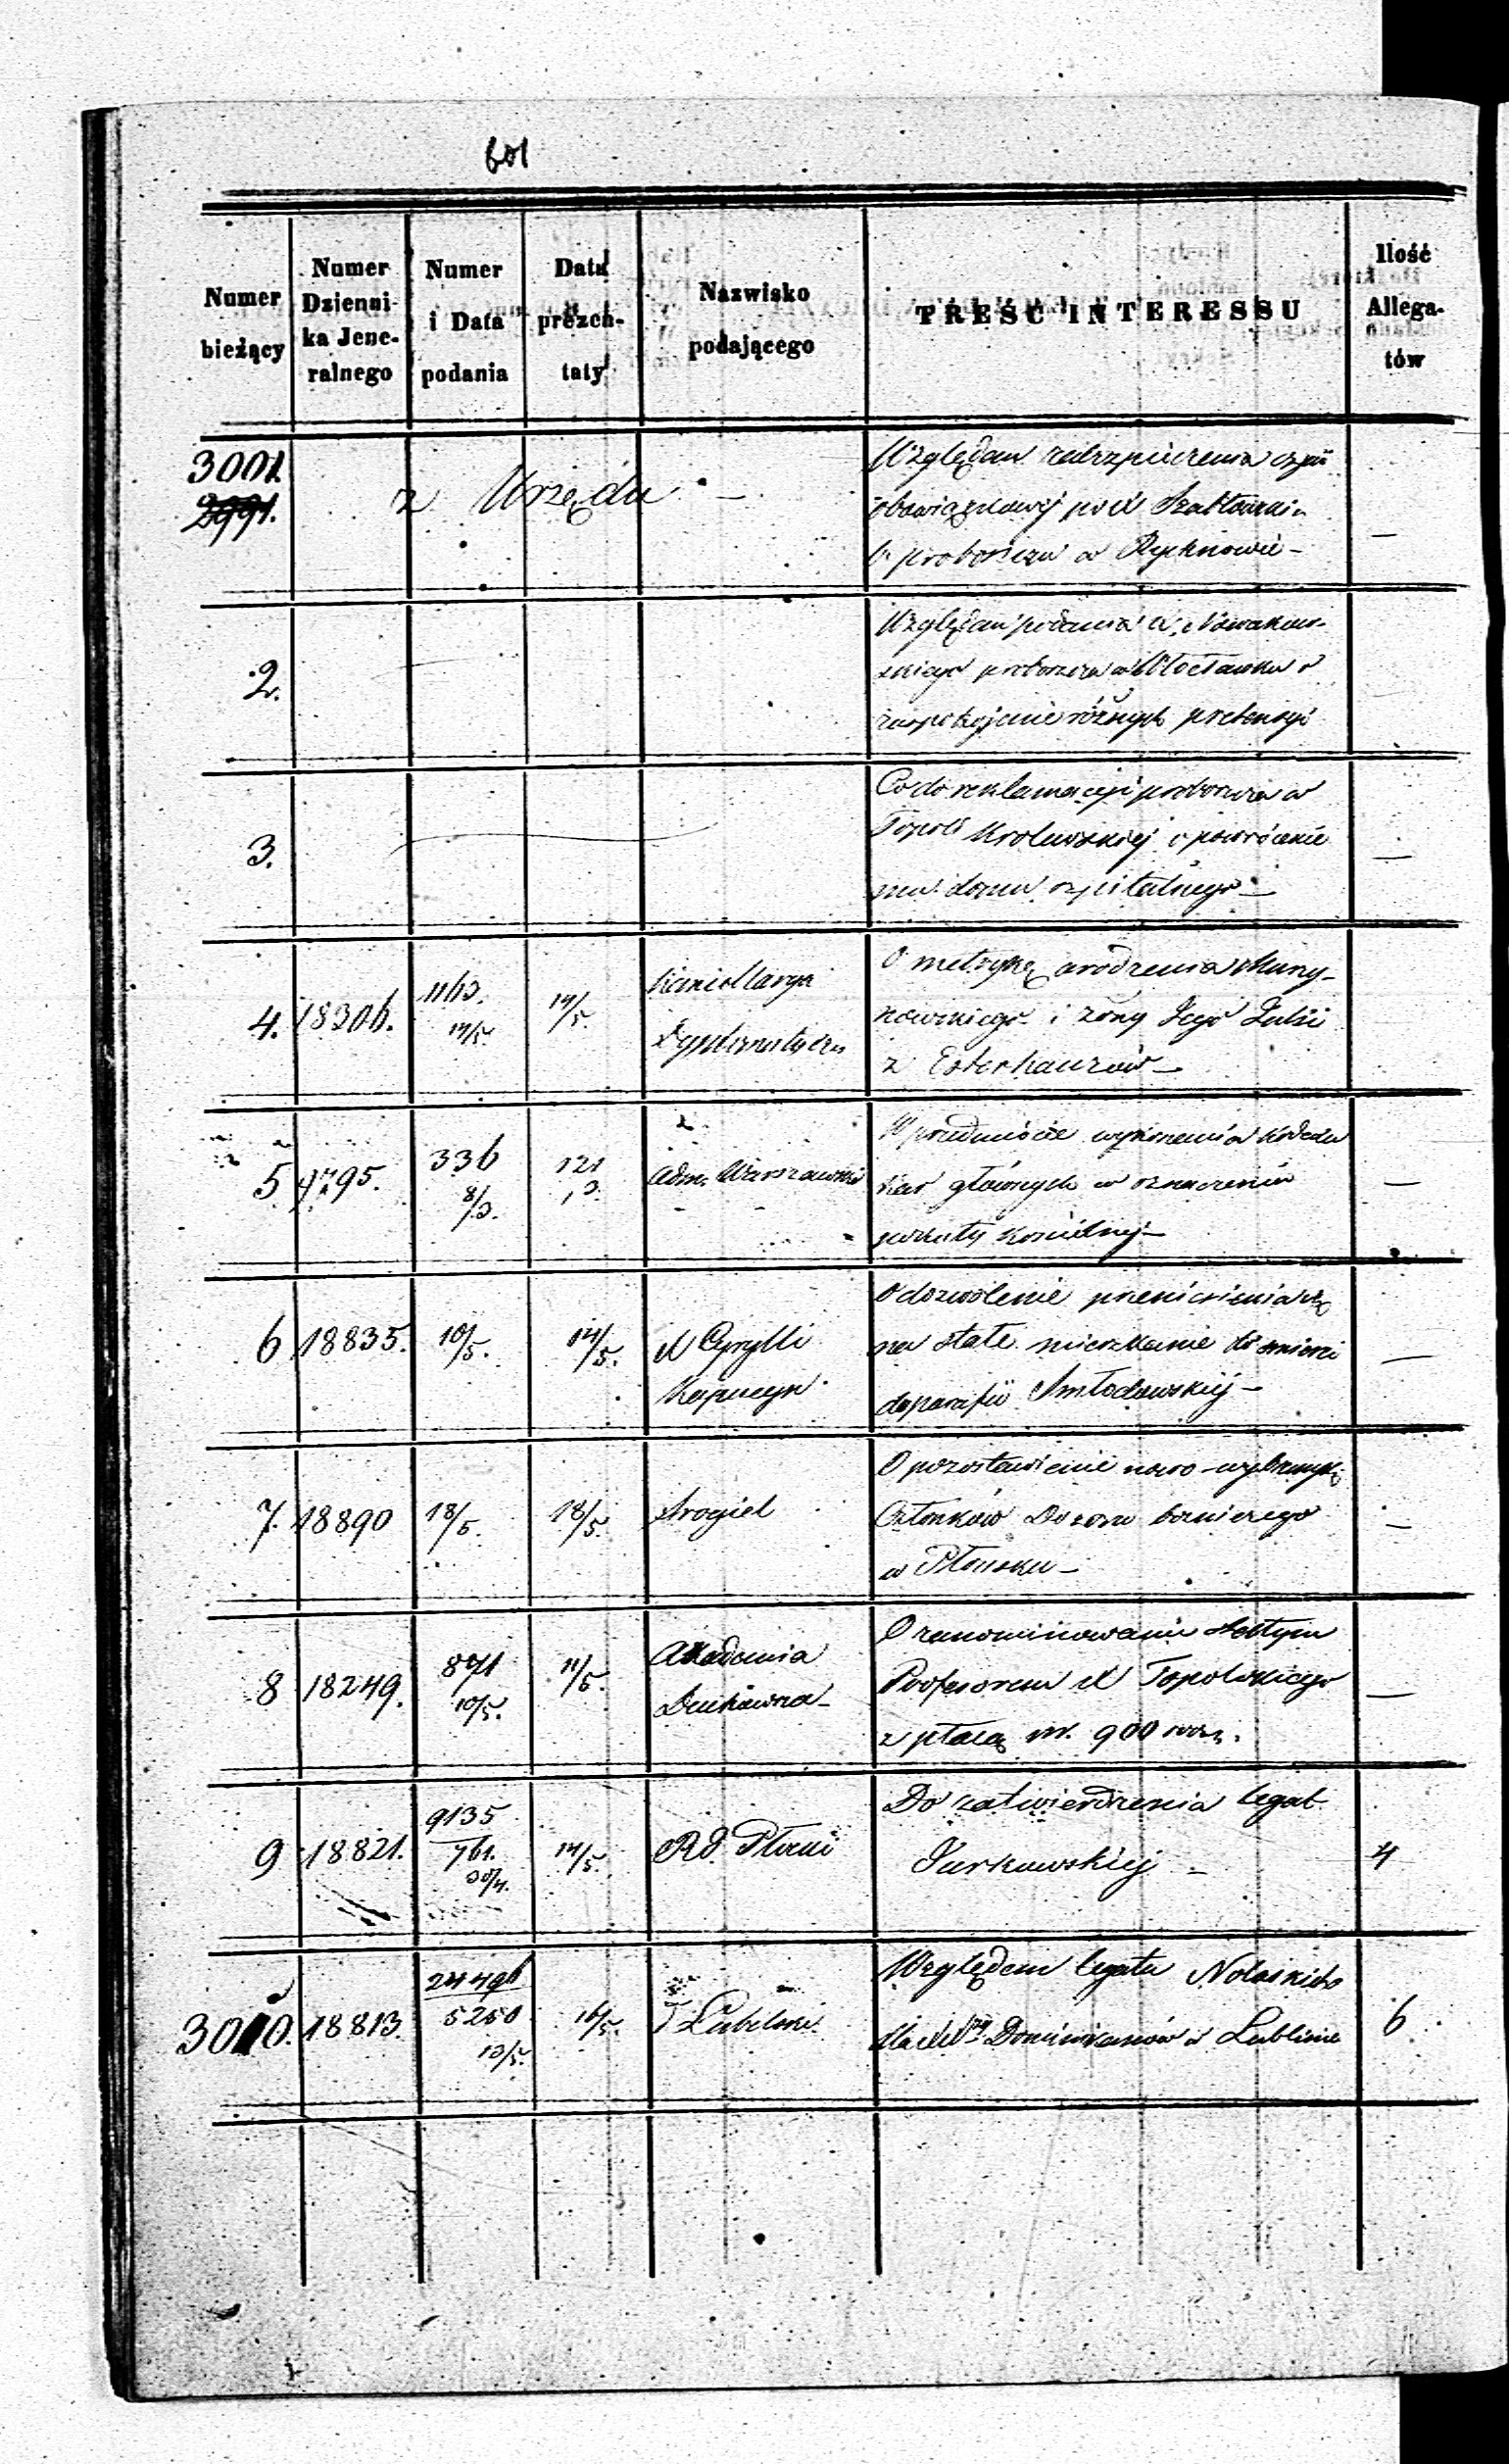 601
Numer bieżący
Numer Dzienni- ka Jene- ralnego
Numer i Data podania
Data prezen- taty
Nazwisko podającego
TREŚĆ INTERESSU
Ilość Allega- tów
3001
2991.
z Urzędu —
Względem zabezpieczenia
obowiązkowej po X
proboszczu w Rychnowie —
—
2.
Względem podania X. Nowakow-
skiego proboszcza w Włocławku o
zaspokojenie różnych pretensyi
3.
Co do reklamacyi proboszcza w
Topoli Krolewskiej o powrócenie
mu domu szpitalnego —
—
4.
18306.
1113.
14/5
14/5.
Kancellarya
Dyplomatyczna
O metrykę urodzenia
i żony Jego Julii
z Esterhauzów —
5
4795.
336
8/3.
121
/3.
Adm. Warszawski
W przedmiocie wykonania Kodexu
kar głównych w oznaczeniu
pokuty kościelnej —
—
6
18835.
10/5.
14/5.
X Cyrylli
Kapucyn
O dozwolenie przeniesienia się
na stałe mieszkanie do śmierci
do parafii
—
7.
18890
18/5.
18/5.
Srogiel
O pozostawienie nowo-wybranych
Członków Dozoru bożniczego
w Płońsku —
—
8
18249.
871
10/5.
11/5.
Akademia
Duchowna —
O zanominowanie
Profesorem X Topolskiego
z płacą rs. 900
—
9
18821.
9135
761.
30/4.
14/5.
RG. Płocki
Do zatwierdzenia legat
Jurkowskiej —
4
3010.
18813.
24496
5250
13/5.
16/5.
T Lubelski.
Względem legatu
Dominikanów w Lublinie
6